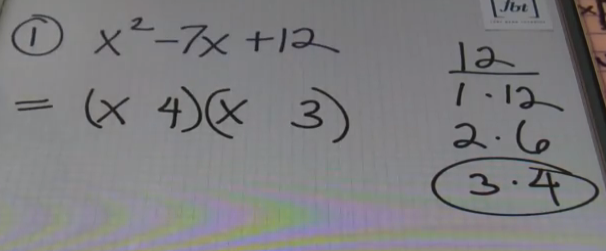 ① x²-7x+12
= (x 4)(x 3)
[Jbt]
12
1·12
2·6
3·4